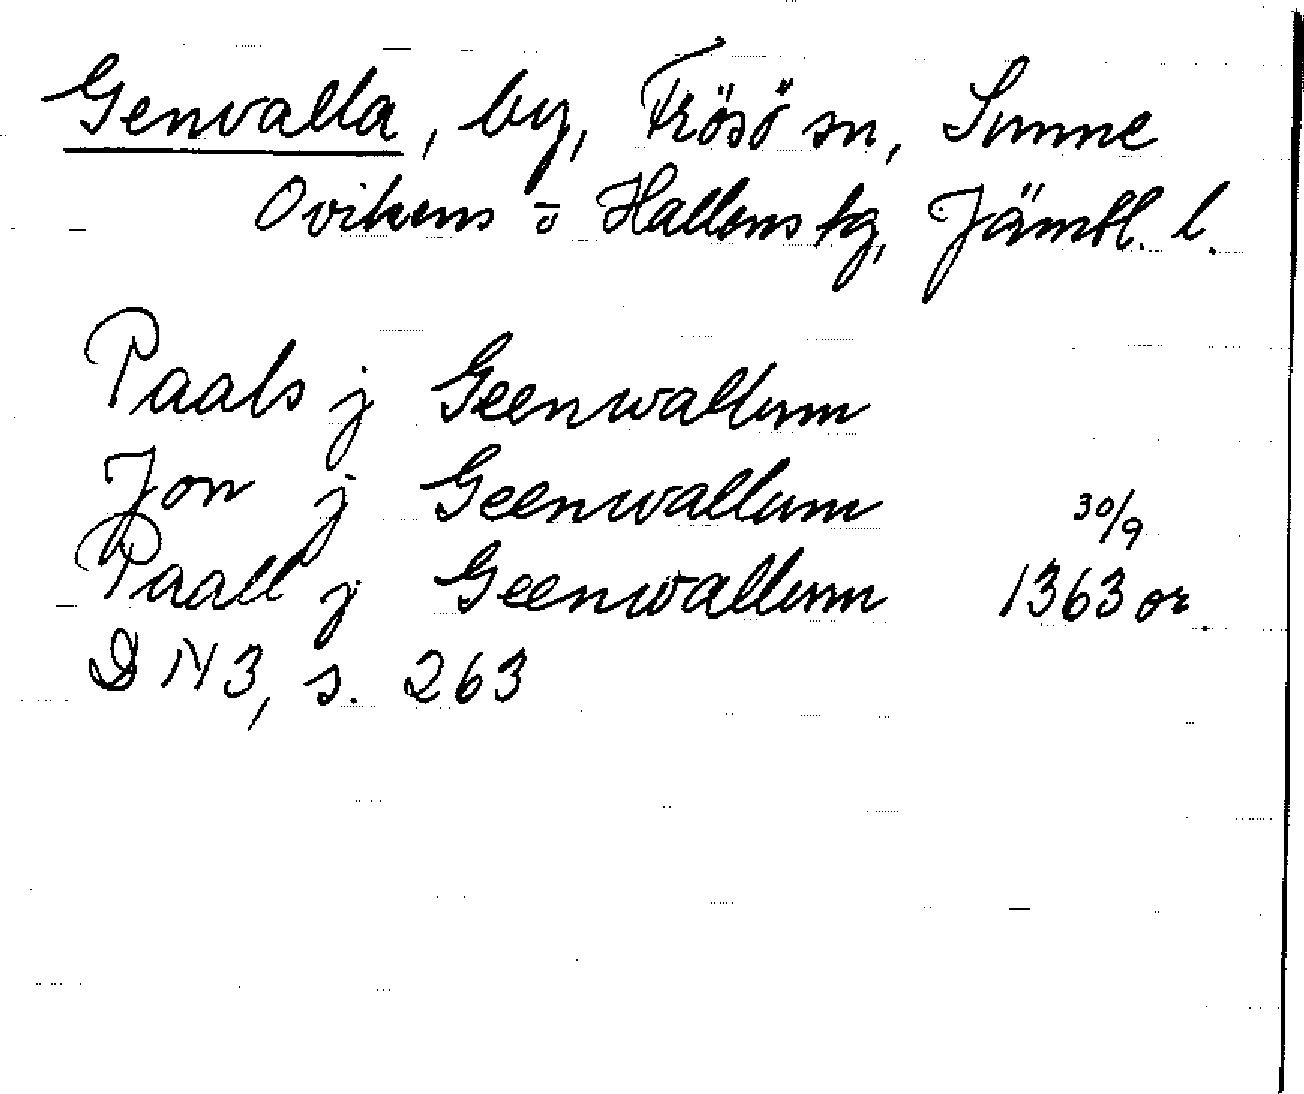 Genvalla, by, Frösö sn, Sunne
Ovikens o Hallens tg, Jämtl. l.
Paals j Geenwallum
Jon j Geenwallum 30/9
Paall j Geenwallum 1363 or.
D 143, s. 263